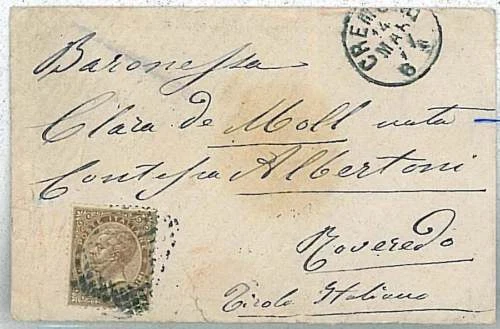 CREMO
14
MAR
6
Baronessa
Clara de Moll nata
Contessa Albertoni
Roveredo
Tirolo Italiano